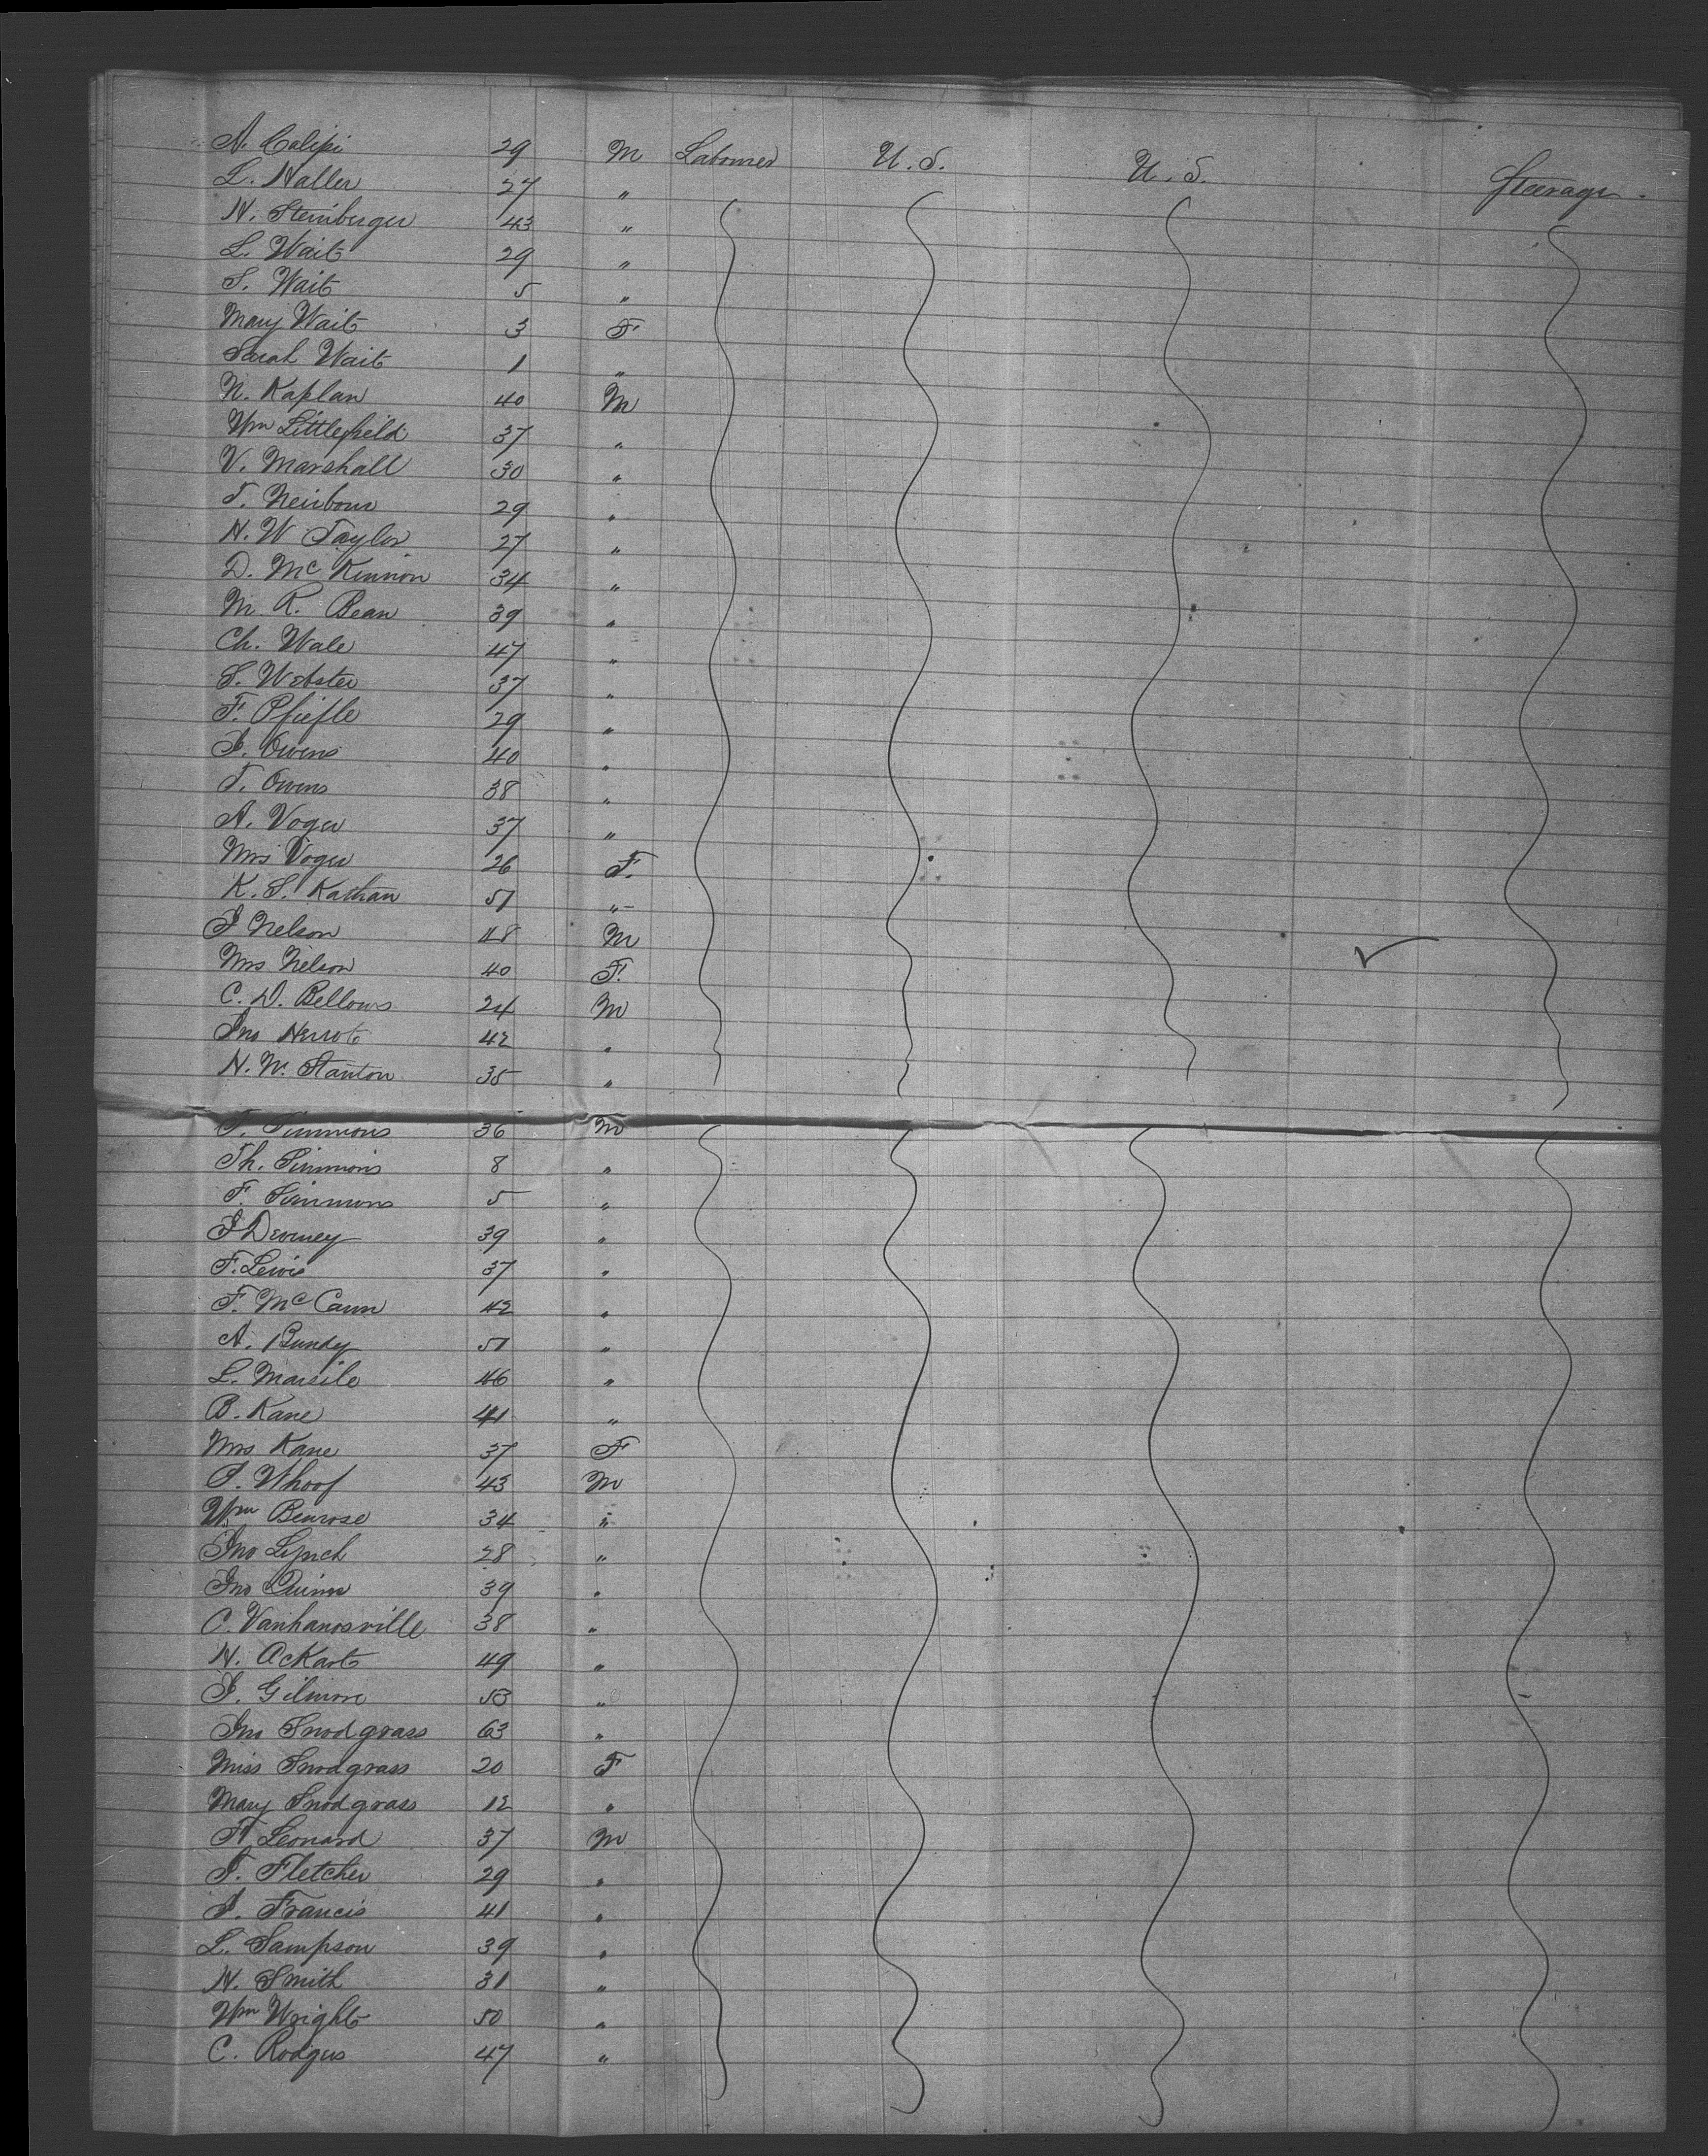 A. Calipi 29 M Laborer U.S. U.S. Steerage
L. Haller 27 "
H. Steinberger 43 "
L. Wait 29 "
S. Wait 5 "
Mary Wait 3 F
Sarah Wait 1 "
N. Kaplan 40 M
Wm Littlefield 37 "
V. Marshall 30 "
T. Neirbour 29 "
H. W Taylor 27 "
D. McKinnon 34 "
M R. Bean 39 "
Ch. Wale 47 "
S. Webster 37 "
F. Pfiefle 29 "
J. Owens 40 "
T. Owens 38 "
A. Voger 37 "
Mrs Voger 26 F.
K. S. Kashan 51 "
J Nelson 48 M
Mrs Nelson 40 F.
C. D. Bellows 24 M
Jno Herrot 42 "
N. W. Stanton 35 "
T. Simmons 36 M
Th. Simmons 8 "
F. Simmons 5 "
J Deveney 39 "
F. Lewis 37 "
F. McCann 42 "
A. Bundy 51 "
L. Marsile 46 "
B. Kane 41 "
Mrs Kane 37 F
P. Whoof 43 M
Wm Benrose 34 "
Jno Lynch 28 "
Jno Quinn 39 "
C. Vanhanosville 38 "
H. Ackart 49 "
J. Gilmore 53 "
Jno Snodgrass 63 "
Miss Snodgrass 20 F
Mary Snodgrass 12 "
F. Leonard 37 M
T. Fletcher 29 "
J. Francis 41 "
L. Sampson 39 "
H. Smith 31 "
Wm Wright 50 "
C. Rodgers 47 "